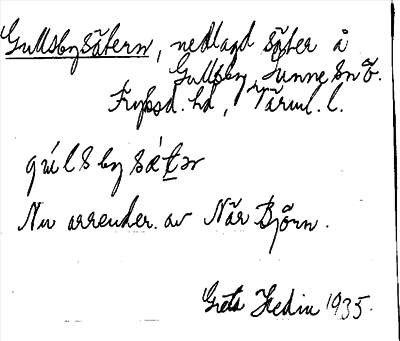 Gullsbysätern, nedlagd säter å
Gullsby, Lunne sn ö.
Fryksd. hd, Värml. l.
gúlsbysǽtər
Nu arrender. av När Björn.
Greta Hedin 1935.